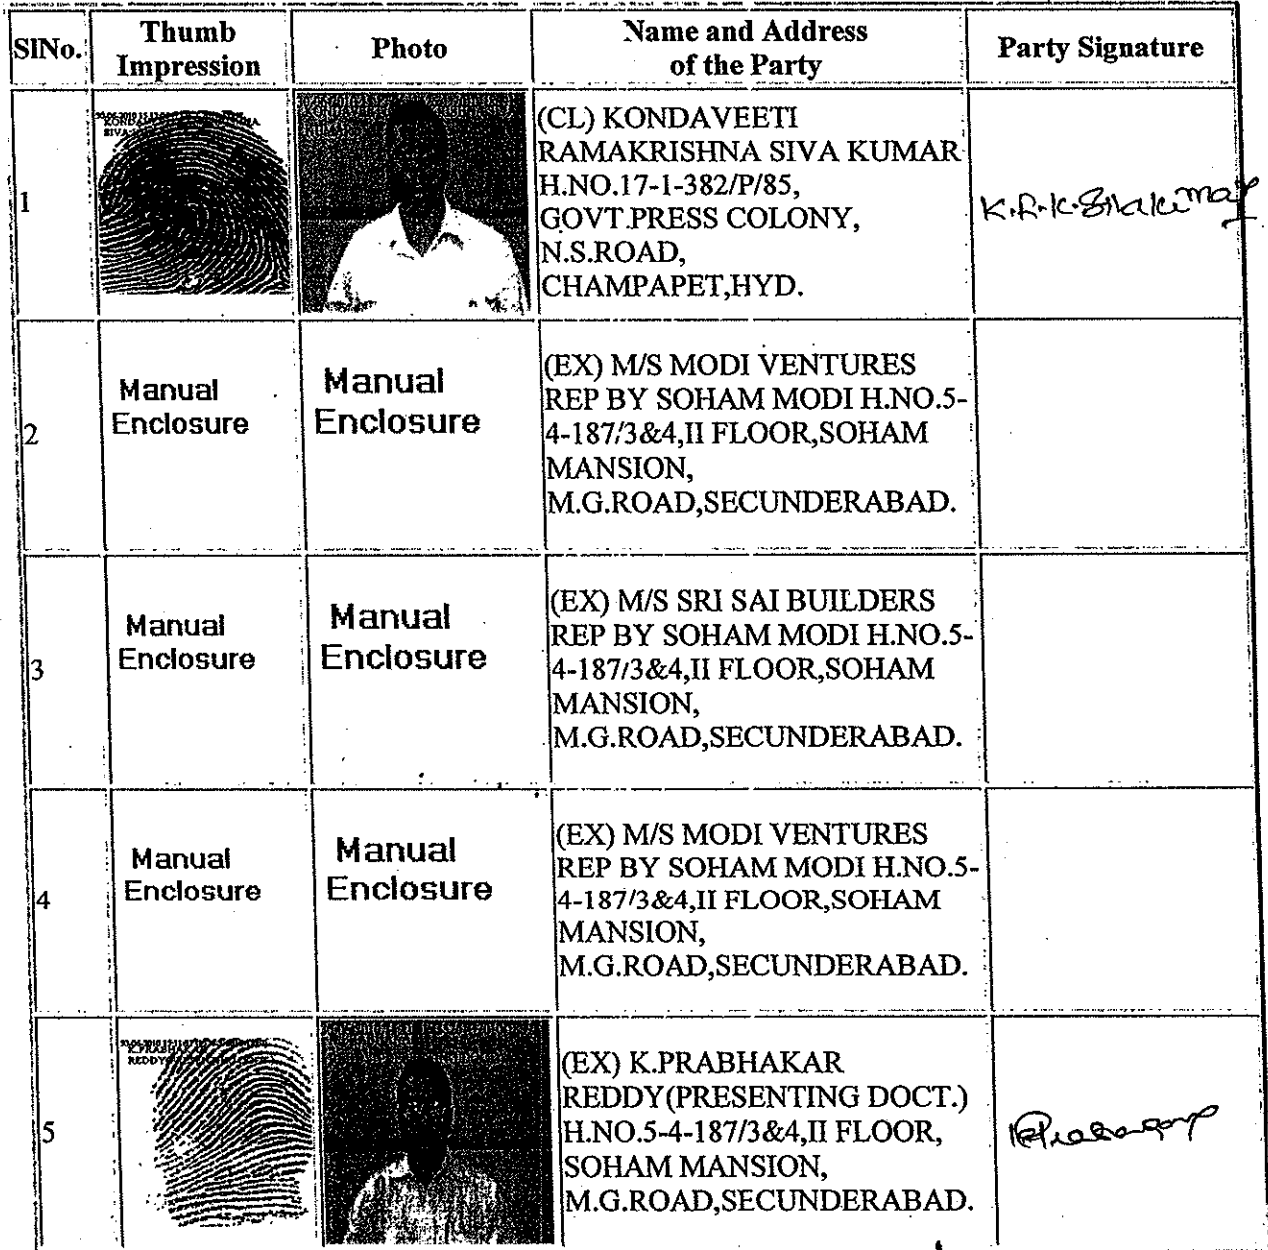 SlNo. Thumb Impression Photo Name and Address of the Party Party Signature
1
(CL) KONDAVEETI
RAMAKRISHNA SIVA KUMAR
H.NO.17-1-382/P/85,
GOVT.PRESS COLONY,
N.S.ROAD,
CHAMPAPET,HYD.
K.R.K.
2
Manual
Enclosure
Manual
Enclosure
(EX) M/S MODI VENTURES
REP BY SOHAM MODI H.NO.5-
4-187/3&4,II FLOOR,SOHAM
MANSION,
M.G.ROAD,SECUNDERABAD.
3
Manual
Enclosure
Manual
Enclosure
(EX) M/S SRI SAI BUILDERS
REP BY SOHAM MODI H.NO.5-
4-187/3&4,II FLOOR,SOHAM
MANSION,
M.G.ROAD,SECUNDERABAD.
4
Manual
Enclosure
Manual
Enclosure
(EX) M/S MODI VENTURES
REP BY SOHAM MODI H.NO.5-
4-187/3&4,II FLOOR,SOHAM
MANSION,
M.G.ROAD,SECUNDERABAD.
5
K.PRABHAKAR
REDDY
(EX) K.PRABHAKAR
REDDY(PRESENTING DOCT.)
H.NO.5-4-187/3&4,II FLOOR,
SOHAM MANSION,
M.G.ROAD,SECUNDERABAD.